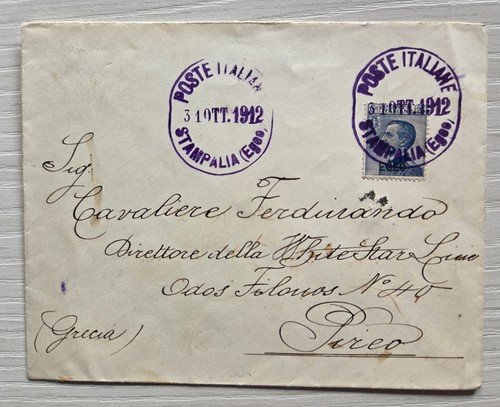 POSTE ITALIANE
31 OTT. 1912
STAMPALIA (Egeo)
POSTE ITALIANE
31 OTT. 1912
STAMPALIA (Egeo)
EGEO
Sig.
Cavaliere Ferdinando
Direttore della White Star Line
Odos Filonos No 40
Pireo
(Grecia)